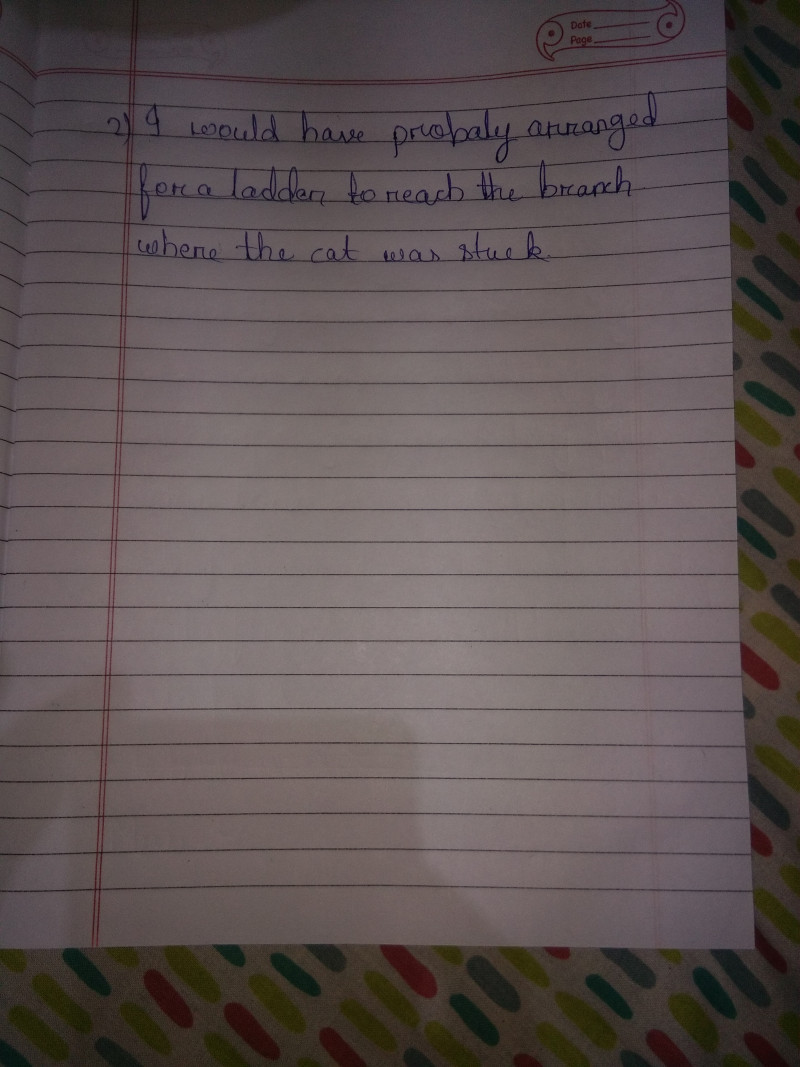 Date
Page
2) I would have probaly arranged
for a ladder to reach the branch
where the cat was stuck.